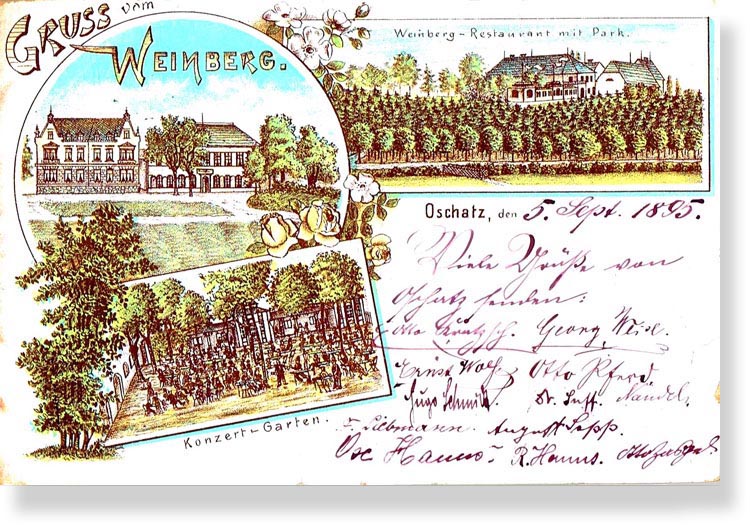 GRUSS vom
WEINBERG.
Weinberg-Restaurant mit Park.
Oschatz, den 5. Sept. 1895.
Viele Grüße von
Oschatz senden:
Otto Georg
Ernst Wolf Otto Pferd.
Hugo Schmidt.
Liebmann. August Sepp.
Hanns R. Hanns.
Konzert-Garten.